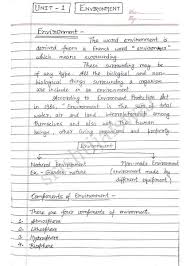 UNIT - 1 ENVIRONMENT
Environment -
The word environment is
derived from a French word "environner"
which means surrounding.
These surrounding may be
of any type. All the biological and non-
biological things surrounding a organism
are include in be environment.
According to Environment Protection Act
in 1986, Environment is the sum of total
water, air and land interrelationship among
themselves and also with the human
beings, other living organisms and property
Environment
Natural Environment Man-made Environment
Ex - Gaseous, nature (environment made by
different equipment)
Components of Environment -
There are four components of environment.
1. Atmosphere
2. Lithosphere
3. Hydrosphere
4. Biosphere